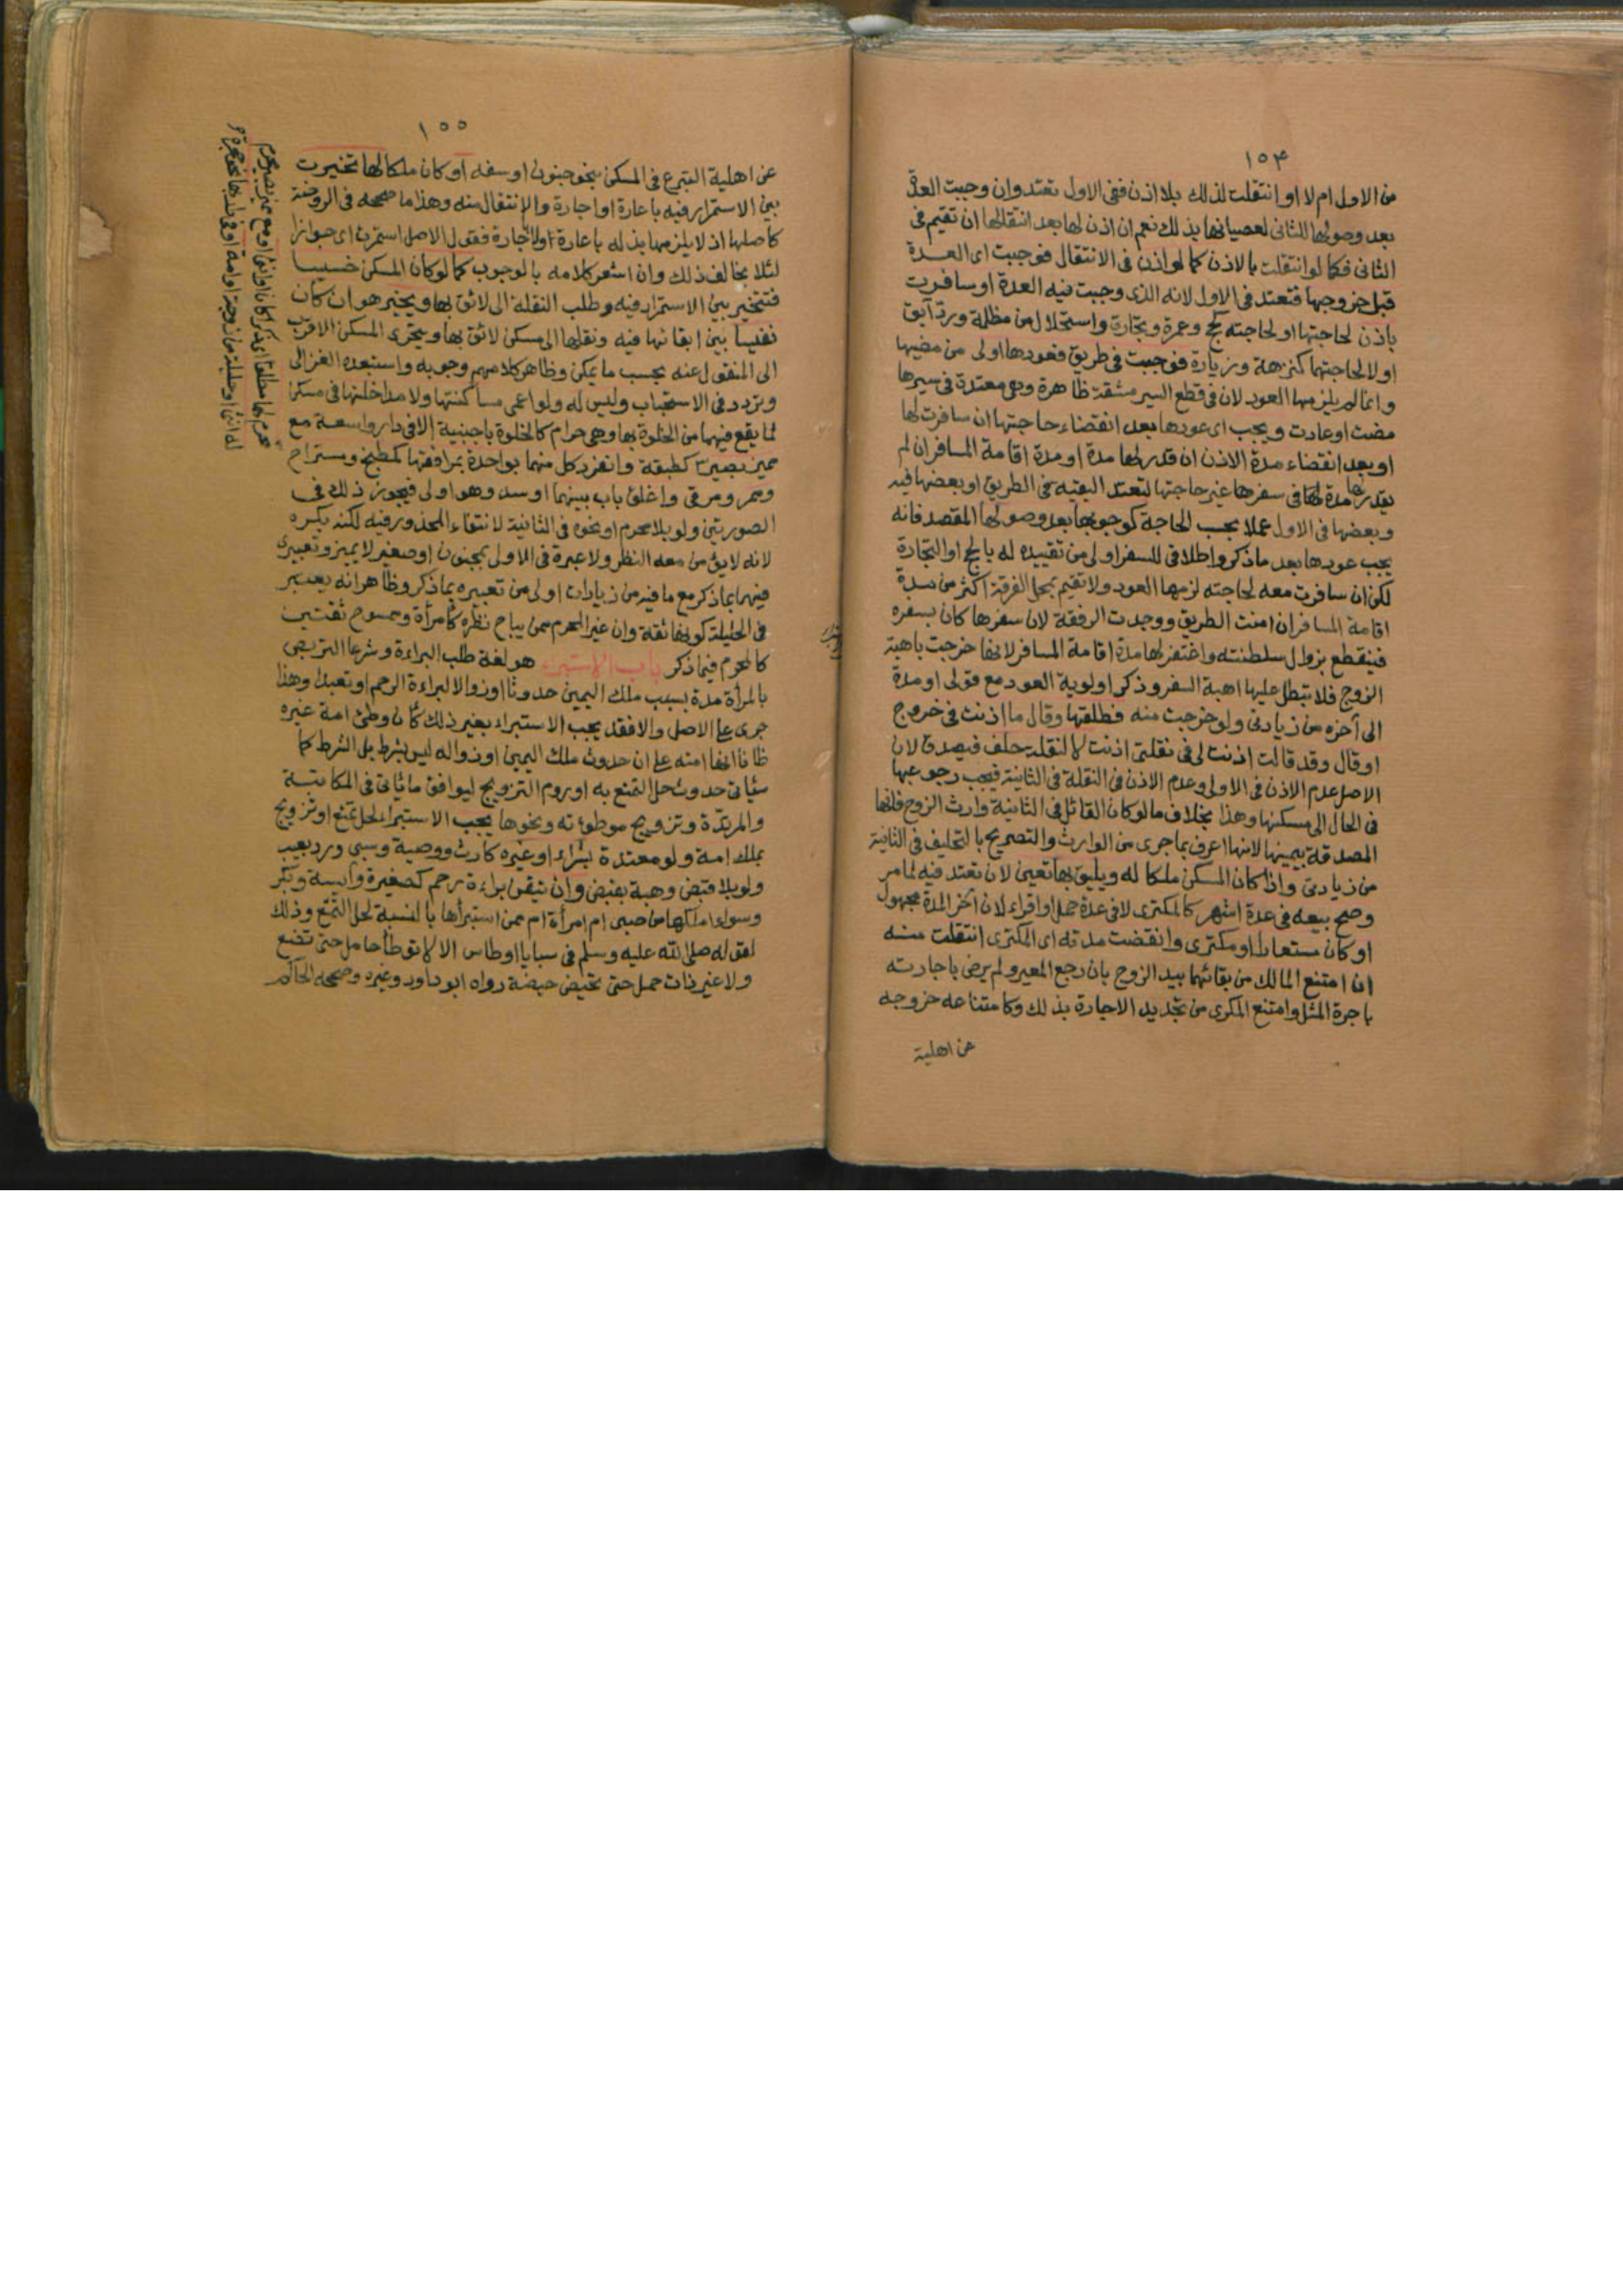 ١٥٤
من الاول ام لا او انتقلت لذلك بلا اذن ففي الاول تعتد وان وجبت العدة
بعد وصولها للثاني لعصيانها بذلك نعم ان اذن لها بعد انتقالها ان تقيم في
الثاني فكما لو انتقلت بالاذن كما لو اذن في الانتقال فوجبت اى العدة
قبل خروجها فتعتد في الاول لانه الذى وجبت فيه العدة او سافرت
باذن لحاجتها او لحاجته كحج وعمرة وتجارة واستحلال من مظلمة ورد آبق
او لا لحاجتهما كنزهة وزيارة فوجبت في طريق فعودها اولى من مضيها
وانما لم يلزمها العود لان في قطع السير مشقة ظاهرة وهي معتدة في سيرها
مضت او عادت ويجب اى عودها بعد انقضاء حاجتها ان سافرت لها
او بعد انقضاء مدة الاذن ان قدر لها مدة او مدة اقامة المسافر ان لم
يقدر لها مدة في سفرها غير حاجتها لتعتد البقية في الطريق او بعضها فيه
وبعضها في الاول عملا بحسب الحاجة كوجوبها بعد وصولها المقصد فانه
يجب عودها بعد ما ذكر واطلاقي للسفر اولى من تقييده له بالحج او التجارة
لكن ان سافرت معه لحاجته لزمها العود ولا تقيم بمحل الفرقة اكثر من مدة
اقامة المسافر ان امنت الطريق ووجدت الرفقة لان سفرها كان بسفره
فينقطع بزوال سلطنته واغتفر لها مدة اقامة المسافر لانها خرجت باهبة
الزوج فلا تبطل عليها اهبة السفر وذكر اولوية العود مع قولى او مدة
الى آخره من زيادتى ولو خرجت منه فطلقها وقال ما اذنت في خروج
او قال وقد قالت اذنت لى في نقلتى اذنت لا لنقلة حلف فيصدق لان
الاصل عدم الاذن في الاولى وعدم الاذن في النقلة في الثانية فيجب رجوعها
في الحال الى مسكنها وهذا بخلاف ما لو كان القائل في الثانية وارث الزوج فانها
المصدقة بيمينها لانها اعرف بما جرى من الوارث والتصريح بالتحليف في الثانية
من زيادتى واذا كان المسكن ملكا له ويليق بها تعين لان تعتد فيه لما مر
وصح بيعه في عدة اشهر كالمكترى لا في عدة حمل او اقراء لان آخر المدة مجهول
او كان مستعارا او مكترى وانقضت مدته اى المكترى انتقلت منه
ان امتنع المالك من بقائها بيد الزوج بان رجع المعير ولم يرض باجارته
باجرة المثل وامتنع المكرى من تجديد الاجارة بذلك وكامتناعه خروجه
عن اهلية
١٥٥
عن اهلية التبرع في المسكن بنحو جنون او سفه او كان ملكا لها تخيرت
بين الاستمرار فيه باعارة او اجارة والانتقال منه وهذا ما صححه في الروضة
كاصلها اذ لا يلزمها بذله باعارة ولا اجارة فقول الاصل استمرت اى جوازا
لئلا يخالف ذلك وان اشعر كلامه بالوجوب كما لو كان المسكن خسيسا
فتتخير بين الاستمرار فيه وطلب النقلة الى لائق بها ويخير هو ان كان
نفيسا بين ابقائها فيه ونقلها الى مسكن لائق بها ويتحرى المسكن الاقرب
الى المنقول عنه بحسب ما يمكن وظاهر كلامهم وجوبه واستبعده الغزالى
وتردد في الاستحباب وليس له ولو اعمى مساكنتها ولا مداخلتها في مسكن
لما يقع فيهما من الخلوة بها وهي حرام كالخلوة باجنبية الا في دار واسعة مع
مميز بصير كطبقة وانفرد كل منهما بواحدة بمرافقها كمطبخ ومستراح
وممر ومرقى واغلق باب بينهما او سد وهو اولى فيجوز ذلك في
الصورتين ولو بلا محرم او نحوه في الثانية لانتفاء المحذور فيه لكنه يكره
لانه لا يؤمن معه النظر ولا عبرة في الاولى بمجنون او صغير لا يميز وتعبيرى
فيهما بما ذكر مع ما فيه من زيادات اولى من تعبيره بما ذكر وظاهر انه يعتبر
في الحليلة كونها ثقة وان غير المحرم ممن يباح نظره كامرأة وممسوح ثقتين
كالمحرم فيما ذكر باب الاستبراء هو لغة طلب البراءة وشرعا التربص
بالمرأة مدة بسبب ملك اليمين حدوثا او زوالا لبراءة الرحم او تعبدا وهذا
جرى على الاصل والا فقد يجب الاستبراء بغير ذلك كأن وطئ امة غيره
ظانا انها امته على ان حدوث ملك اليمين او زواله ليس بشرط بل الشرط كما
سيأتى حدوث حل التمتع به او روم التزويج ليوافق ما يأتى في المكاتبة
والمرتدة وتزويج موطوءته ونحوها يجب الاستبراء لحل تمتع او تزويج
بملك امة ولو معتدة بشراء او غيره كارث ووصية وسبى ورد بعيب
ولو بلا قبض وهبة بقبض وان تيقن براءة رحم كصغيرة وآيسة وبكر
وسواء املكها من صبى ام امرأة ام ممن استبرأها بالنسبة لحل التمتع وذلك
لقوله صلى الله عليه وسلم في سبايا اوطاس الا لا توطأ حامل حتى تضع
ولا غير ذات حمل حتى تحيض حيضة رواه ابو داود وغيره وصححه الحاكم
محرم لها مطلقا اى ذكرا كان او انثى او مع مميز بصير محرم
له انثى او حليلة من زوجة او امة او في دار بها نحو حجرة و